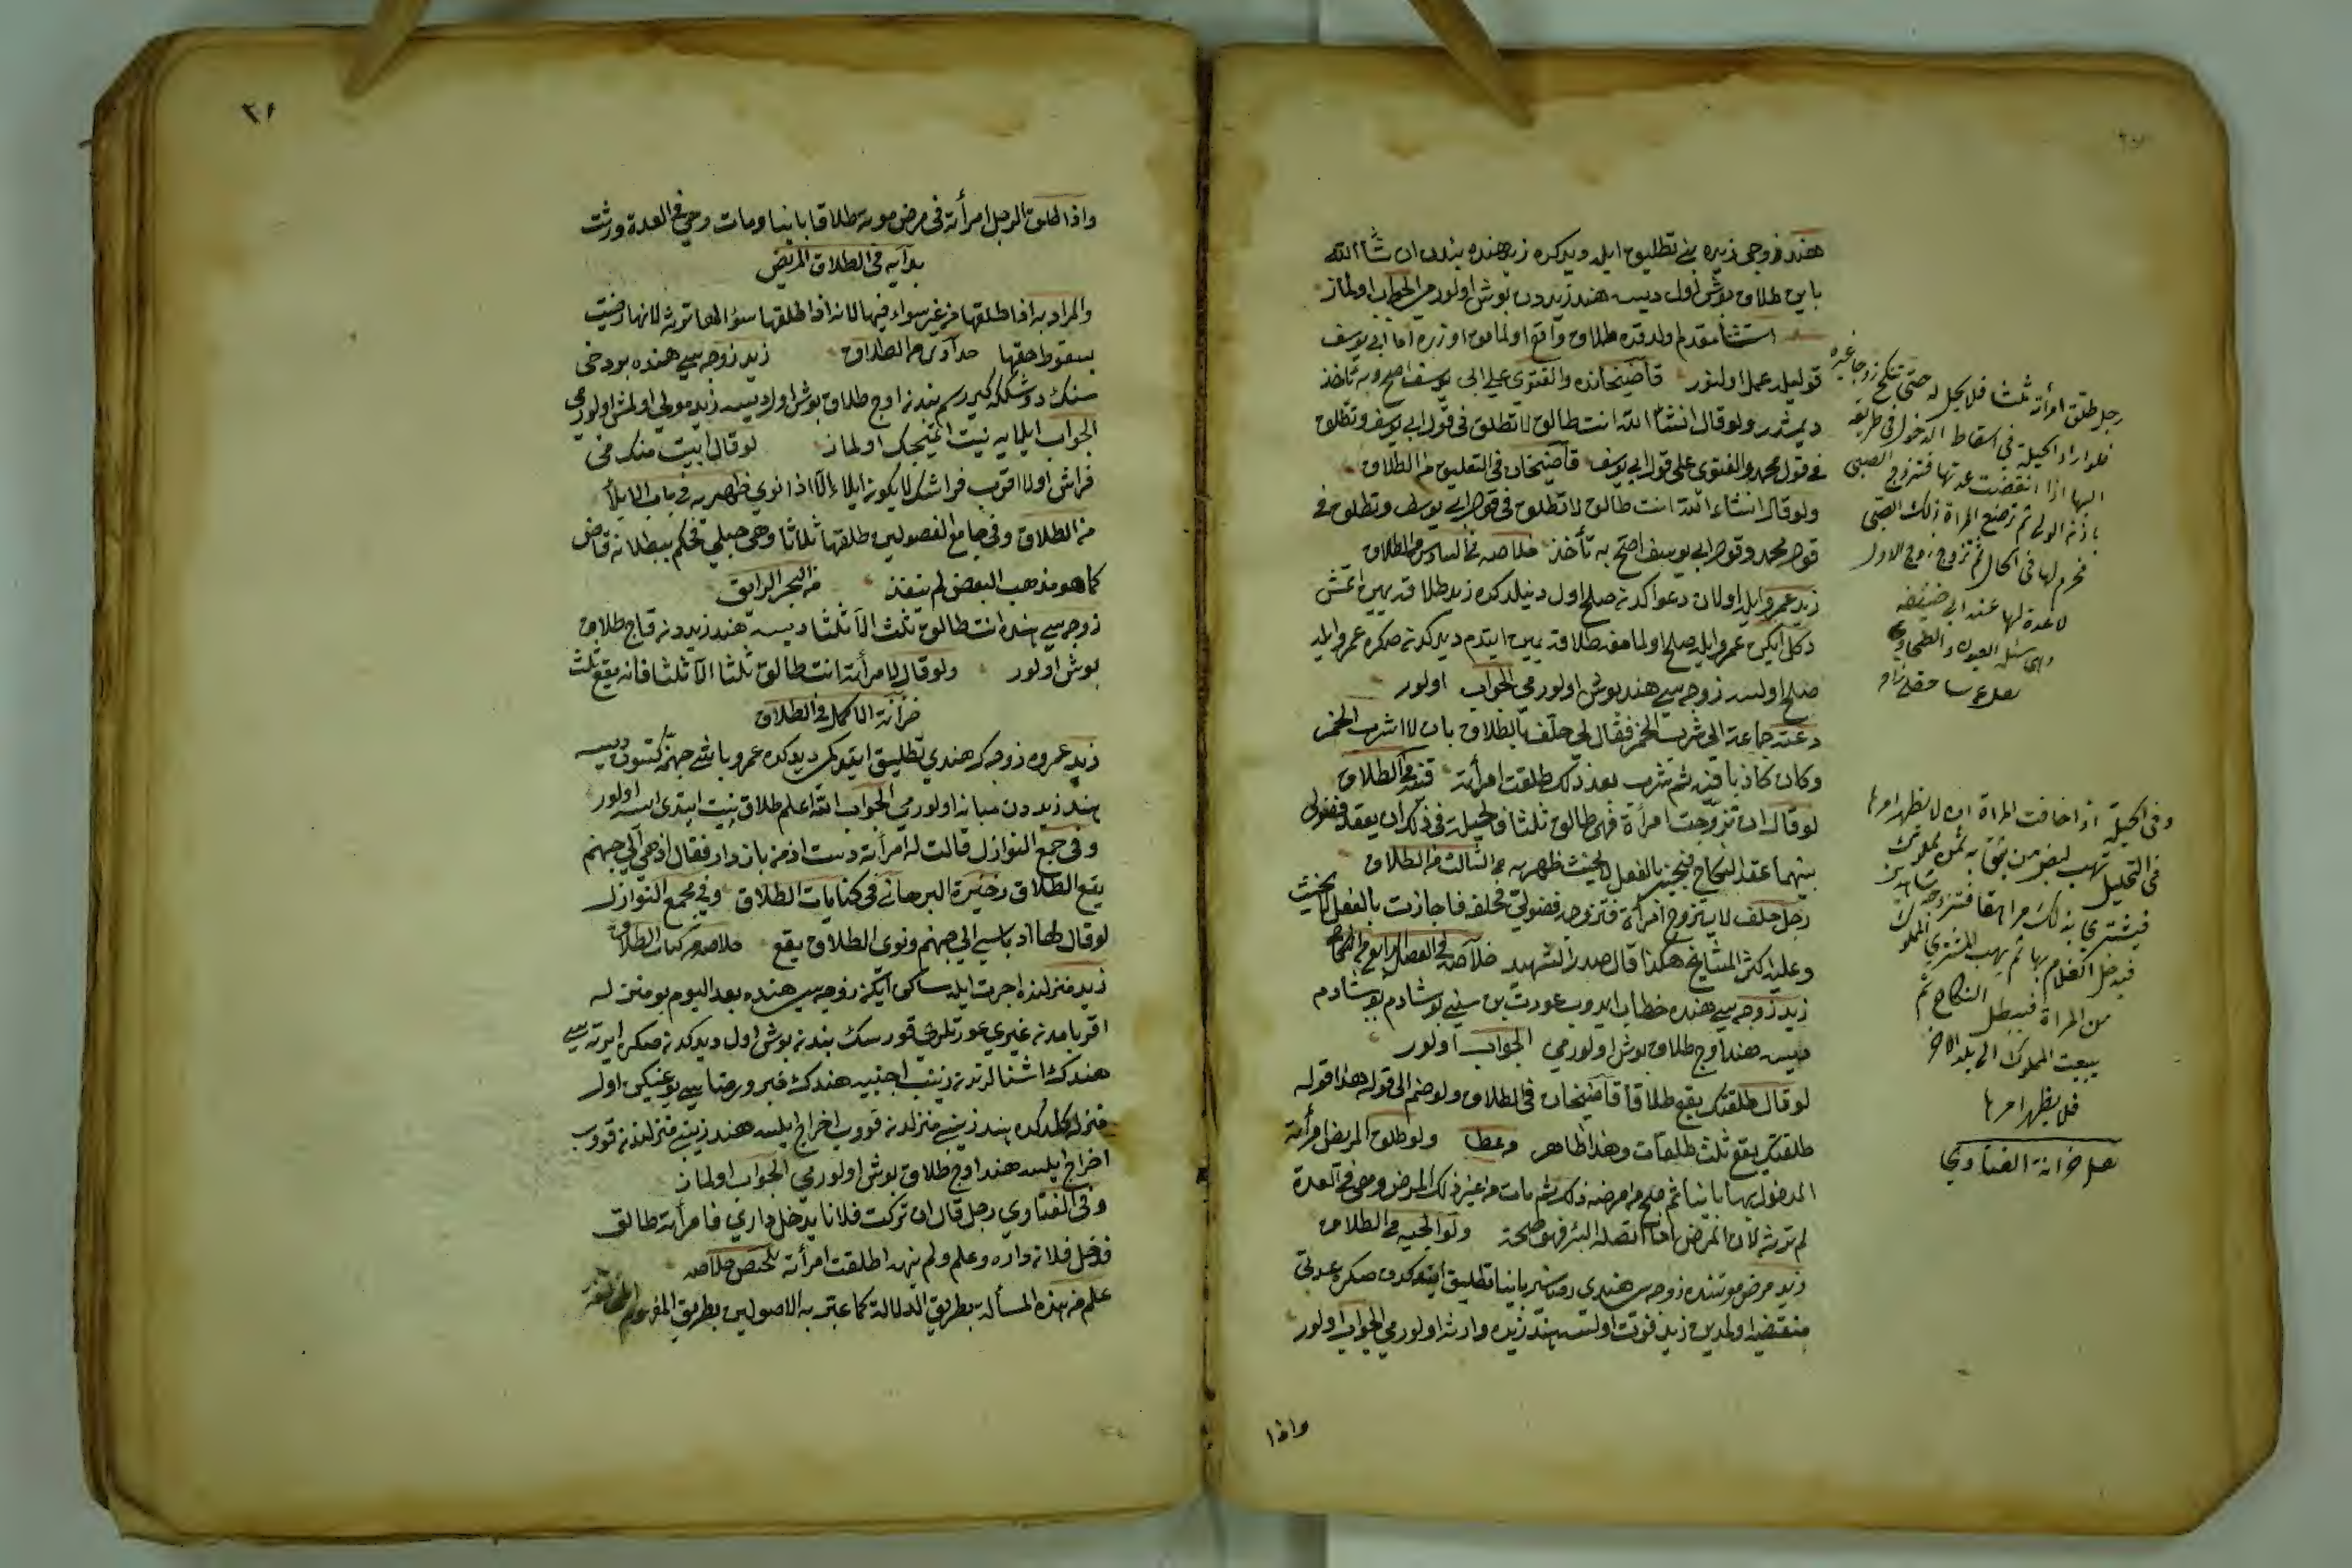 هند زوجى زيده بنى تطليق ايله ديدكده زيد هنده بندن ان شاء الله
باين طلاق بوش اول ديسه هند زيددن بوش اولورمى الجواب اولماز
استثنا مقدم اولدقده طلاق واقع اولمامق اوزره امام ابى يوسف
قوليله عمل اولنور قاضيخانده والفتوى على ابى يوسف اصح وبه نأخذ
ديمشدر ولو قال انشاء الله انت طالق لا تطلق فى قول ابى يوسف وتطلق
فى قول محمد والفتوى على قول ابى يوسف قاضيخان فى التعليق من الطلاق
ولو قال انشاء الله انت طالق لا تطلق فى قول ابى يوسف وتطلق فى
قول محمد وقول ابى يوسف اصح به نأخذ خلاصه فى السادس من الطلاق
زيد عمرو ايله اولان دعواكدن صلح اول دينلدكده زيد طلاقه يمين اتمش
دكل ايكن عمرو ايله صلح اولمامغه طلاقه يمين ايتدم ديدكدن صكره عمرو ايله
صلح اولسه زوجه سى هند بوش اولورمى الجواب اولور
دعته جماعة الى شرب الخمر فقال انى حلف بالطلاق بان لا اشرب الخمر
وكان كاذبا فيه ثم شرب بعد ذلك طلقت امرأته قنيه من الطلاق
لو قال ان تزوجت امرأة فهى طالق ثلثا فالحيلة فى ذلك ان يعقد فضولى
بينهما عقد النكاح فيجيز بالفعل لا يحنث ظهيريه فى الثالث من الطلاق
رجل حلف لا يتزوج امرأة فتزوجه فضولى فحلفه فاجازت بالفعل لا يحنث
وعليه اكثر المشايخ هكذا قال صدر الشهيد خلاصه فى الفصل الرابع من النكاح
زيد زوجه سى هنده خطاب ايدوب عورت بن سنى بوشادم بوشادم
ديسه هند اوج طلاق بوش اولورمى الجواب اولور
لو قال طلقتك يقع طلاقا قاضيخان فى الطلاق ولو ضم الى قوله هذا قوله
طلقتك يقع ثلث طلقات وهذا ظاهر ولو طلق المريض امرأته
المدخول بها باينا ثم صلح من مرضه ذلك ثم مات من غير ذلك المرض وهى فى العدة
لم ترثه لان المرض اذا اتصله البئر فهو صحة ولوالجيه من الطلاق
زيد مرض موتنده زوجه سى هندى باينا تطليق ايتدكدن صكره عدتى
منقضيه اولمدين زيد فوت اولسه هند زيده وارثه اولورمى الجواب اولور
واذا
رجل طلق امرأته ثلثا فلا يحل له حتى تنكح زوجا غيره
فلو اراد الحيلة فى اسقاط الدخول فى طريقه
اليها اذا انقضت عدتها فتزوج الصبى
باذن الولى ثم ترضع المرأة ذلك الصبى
فحرم لها فى الحال ثم تزوج زوج الاول
لا عدة لها عند ابى حنيفه
وفى الحيلة اذا خافت المرأة ان لا يظهر امرها
فى التحليل تهب لبعض من يثق به ثمن مملوك
فيشترى بذلك مراهقا فتزوجه شاهدين
فيدخل الغلام بها ثم يهب المشترى المملوك
من المرأة فيبطل النكاح ثم
يبعث المملوك الى بلد الاخر
فلا يظهر امرها
نقل خزانة الفتاوى
واذا طلق الرجل امرأته فى مرض موته طلاقا باينا ومات وهى فى العدة ورثت
بدايه فى الطلاق المريض
والمراد به اذا طلقها من غير سؤال فيها لانه اذا طلقها سؤالها لا ترثه لانها رضيت
بسقوط حقها حدادى من الطلاق زيد زوجه سى هنده بو دخى
سنك دوشككه كيررسم بندن اوج طلاق بوش اول ديسه زيد مولى اولمش اولورمى
الجواب ايلايه نيت اتميجك اولماز لو قال ابيت منك فى
فراش او لا اقرب فراشك لا يكون ايلاء الا اذا نوى ظهيريه فى باب الايلاء
من الطلاق وفى جامع الفصولين طلقها ثلاثا وهى حبلى فحكم ببطلانه قاض
كما هو مذهب البعض لم ينفذ من البحر الرايق
زوجه سى هنده انت طالق ثلث الا ثلثا ديسه هند زيددن قاج طلاق
بوش اولور ولو قال لامرأته انت طالق ثلثا الا ثلثا فانه يقع ثلث
خزانة الاكمل فى الطلاق
زيد عمروه زوجه ك هندى تطليق ايتدكمى ديدكده عمرو باشى جهنمه كتسون ديسه
هند زيددن مبانه اولورمى الجواب الله اعلم طلاق نيت ايتدى ايسه اولور
وفى جمع النوازل قالت له امرأته دست از من باز دار فقال اذهبى الى جهنم
يقع الطلاق ذخيرة البرهانى فى كنايات الطلاق وفى مجمع النوازل
لو قال لها اذهبى الى جهنم ونوى الطلاق يقع خلاصه من كتاب الطلاق
زيد منزلنده اجرت ايله ساكن ايكن زوجه سى هنده بعد اليوم بو منزله
اقربامدن غيرى عورتلرى قورسك بندن بوش اول ديدكدن صكره ايرته سى
هندك اشنالرندن زينب اجنبيه هندك خبر ورضاسى يوغيكن اول
منزله كلدكده هند زينبى منزلدن قووب اخراج ايلسه هند زينبى منزلندن قووب
اخراج ايلسه هند اوج طلاق بوش اولورمى الجواب اولماز
وفى الفتاوى رجل قال ان تركت فلانا يدخل دارى فامرأته طالق
فدخل فلان داره وعلم ولم ينهه اطلقت امرأته تلخيص خلاصه
علم من هذه المسألة بطريق الدلالة كما عتبر به الاصولين بطريق المفهوم